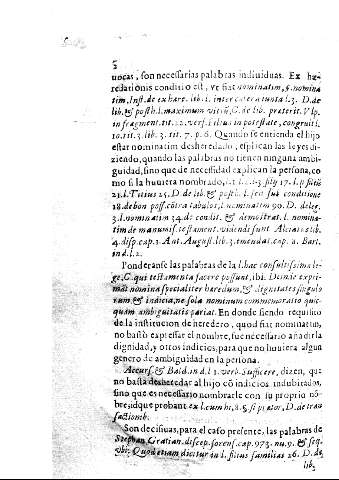 uocas, son necessarias palabras indiuiduas. Ex hæ-
redationis conditio est, vt fiat nominatim, §. nomina
tim, Inst. de exhære. lib. l. inter cætera tunta l. 3. D. de
lib. & posth. l. maximum vitiũ, C. de lib. præterit. Vlp.
in fragment. tit. 22. vers. filius in potestate, congruit l.
10. tit. 3. lib. 3. tit. 7. p. 6. Quando se entienda el hijo
estar nominatim desheredado, esplican las leyes di-
ziendo, quando las palabras no tienen ninguna ambi-
guidad, sino que de necesidad explican la persona, co
mo si la huuiera nombrado,
21. l. Titius 25. D. de lib. & posth. l. seu sub conditione
18. de bon poss. cõtra tabulas, l. nominatim 90. D. de leg.
3. l. nominatim 34. de condit. & demõstrat. l. nominatim
de manumis. testament. videndi sunt Alciat. lib.
4. disp. cap. 1. Ant. August. lib. 3. emendat. cap. 2. Bart.
in d. l. 2.
Ponderanse las palabras de la l. hac consultissima le-
ge, C. qui testamenta facere possunt, ibi. Demùr expri-
mat nomina specialiter hæredum, & dignitates singulo
rum & indicia, ne sola nominum commemoratio que-
quam ambiguitatis pariat. En donde siendo requisito
de la institucion de heredero, quod fiat nominatim,
no bastò expressar el nombre, fue necessario añadir la
dignidad, y otros indicios, para que no huuiera algun
genero de ambiguidad en la persona.
Accurs. & Bald. in d. l. 2. verb. Sufficere, dizen, que
no basta desheredar al hijo cõ indicios indubitados,
sino que es necessario nombrarle con su proprio nõ-
bre, idque probant ex l. cum hi, 8. §. si prætor, D. de tran
sactionib.
Son decisiuas, para el caso presente, las palabras de
Stephan Gratian. discep. forens. cap. 973. nu. 9. & seq.
ibi: Quod etiam dicitur in l. filius familias 16. D. de
lib.